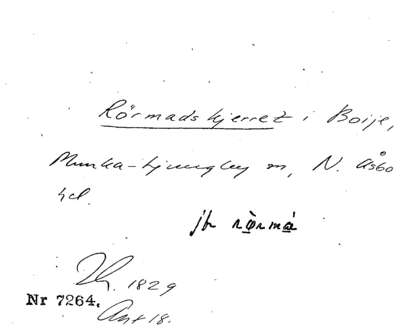 Rörmadskjerret i Boije,
Munka-Ljungby sn, N. Åsbo
hd.
jfr rörmá
1829
Nr 7264.
Ant 18.